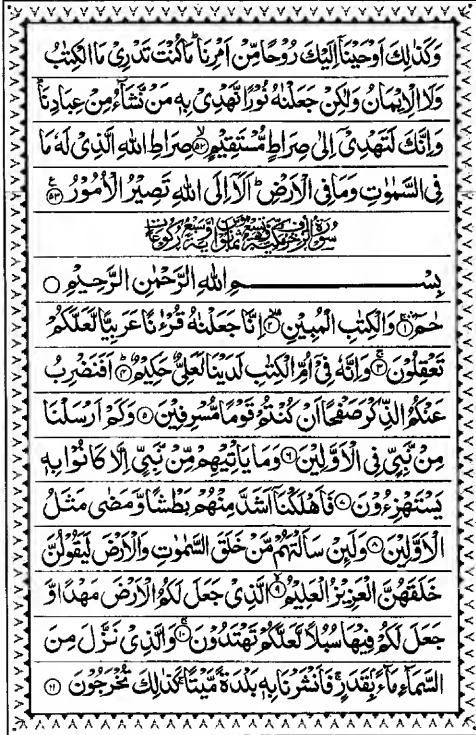 وَكَذٰلِكَ اَوْحَيْنَاۤ اِلَيْكَ رُوْحًا مِّنْ اَمْرِنَا ؕ مَا كُنْتَ تَدْرِىْ مَا الْكِتٰبُ
وَلَا الْاِيْمَانُ وَلٰكِنْ جَعَلْنٰهُ نُوْرًا نَّهْدِىْ بِهٖ مَنْ نَّشَآءُ مِنْ عِبَادِنَا ؕ
وَاِنَّكَ لَتَهْدِىْۤ اِلٰى صِرَاطٍ مُّسْتَقِيْمٍ ۙ﴿۵۲﴾ صِرَاطِ اللّٰهِ الَّذِىْ لَهٗ مَا
فِى السَّمٰوٰتِ وَمَا فِى الْاَرْضِ ؕ اَلَاۤ اِلَى اللّٰهِ تَصِيْرُ الْاُمُوْرُ ﴿۵۳﴾ ع
سُوْرَةُ الزُّخْرُفِ مَكِّيَّةٌ
بِسْمِ اللّٰهِ الرَّحْمٰنِ الرَّحِيْمِ ۝
حٰمٓ ﴿۱﴾ وَالْكِتٰبِ الْمُبِيْنِ ﴿۲﴾ اِنَّا جَعَلْنٰهُ قُرْءٰنًا عَرَبِيًّا لَّعَلَّكُمْ
تَعْقِلُوْنَ ۚ﴿۳﴾ وَاِنَّهٗ فِىْۤ اُمِّ الْكِتٰبِ لَدَيْنَا لَعَلِىٌّ حَكِيْمٌ ؕ﴿۴﴾ اَفَنَضْرِبُ
عَنْكُمُ الذِّكْرَ صَفْحًا اَنْ كُنْتُمْ قَوْمًا مُّسْرِفِيْنَ ﴿۵﴾ وَكَمْ اَرْسَلْنَا
مِنْ نَّبِىٍّ فِى الْاَوَّلِيْنَ ﴿۶﴾ وَمَا يَاْتِيْهِمْ مِّنْ نَّبِىٍّ اِلَّا كَانُوْا بِهٖ
يَسْتَهْزِءُوْنَ ﴿۷﴾ فَاَهْلَكْنَاۤ اَشَدَّ مِنْهُمْ بَطْشًا وَّمَضٰى مَثَلُ
الْاَوَّلِيْنَ ﴿۸﴾ وَلَئِنْ سَاَلْتَهُمْ مَّنْ خَلَقَ السَّمٰوٰتِ وَالْاَرْضَ لَيَقُوْلُنَّ
خَلَقَهُنَّ الْعَزِيْزُ الْعَلِيْمُ ۙ﴿۹﴾ الَّذِىْ جَعَلَ لَكُمُ الْاَرْضَ مَهْدًا وَّ
جَعَلَ لَكُمْ فِيْهَا سُبُلًا لَّعَلَّكُمْ تَهْتَدُوْنَ ۚ﴿۱۰﴾ وَالَّذِىْ نَزَّلَ مِنَ
السَّمَآءِ مَآءًۢ بِقَدَرٍ ۚ فَاَنْشَرْنَا بِهٖ بَلْدَةً مَّيْتًا ۚ كَذٰلِكَ تُخْرَجُوْنَ ﴿۱۱﴾